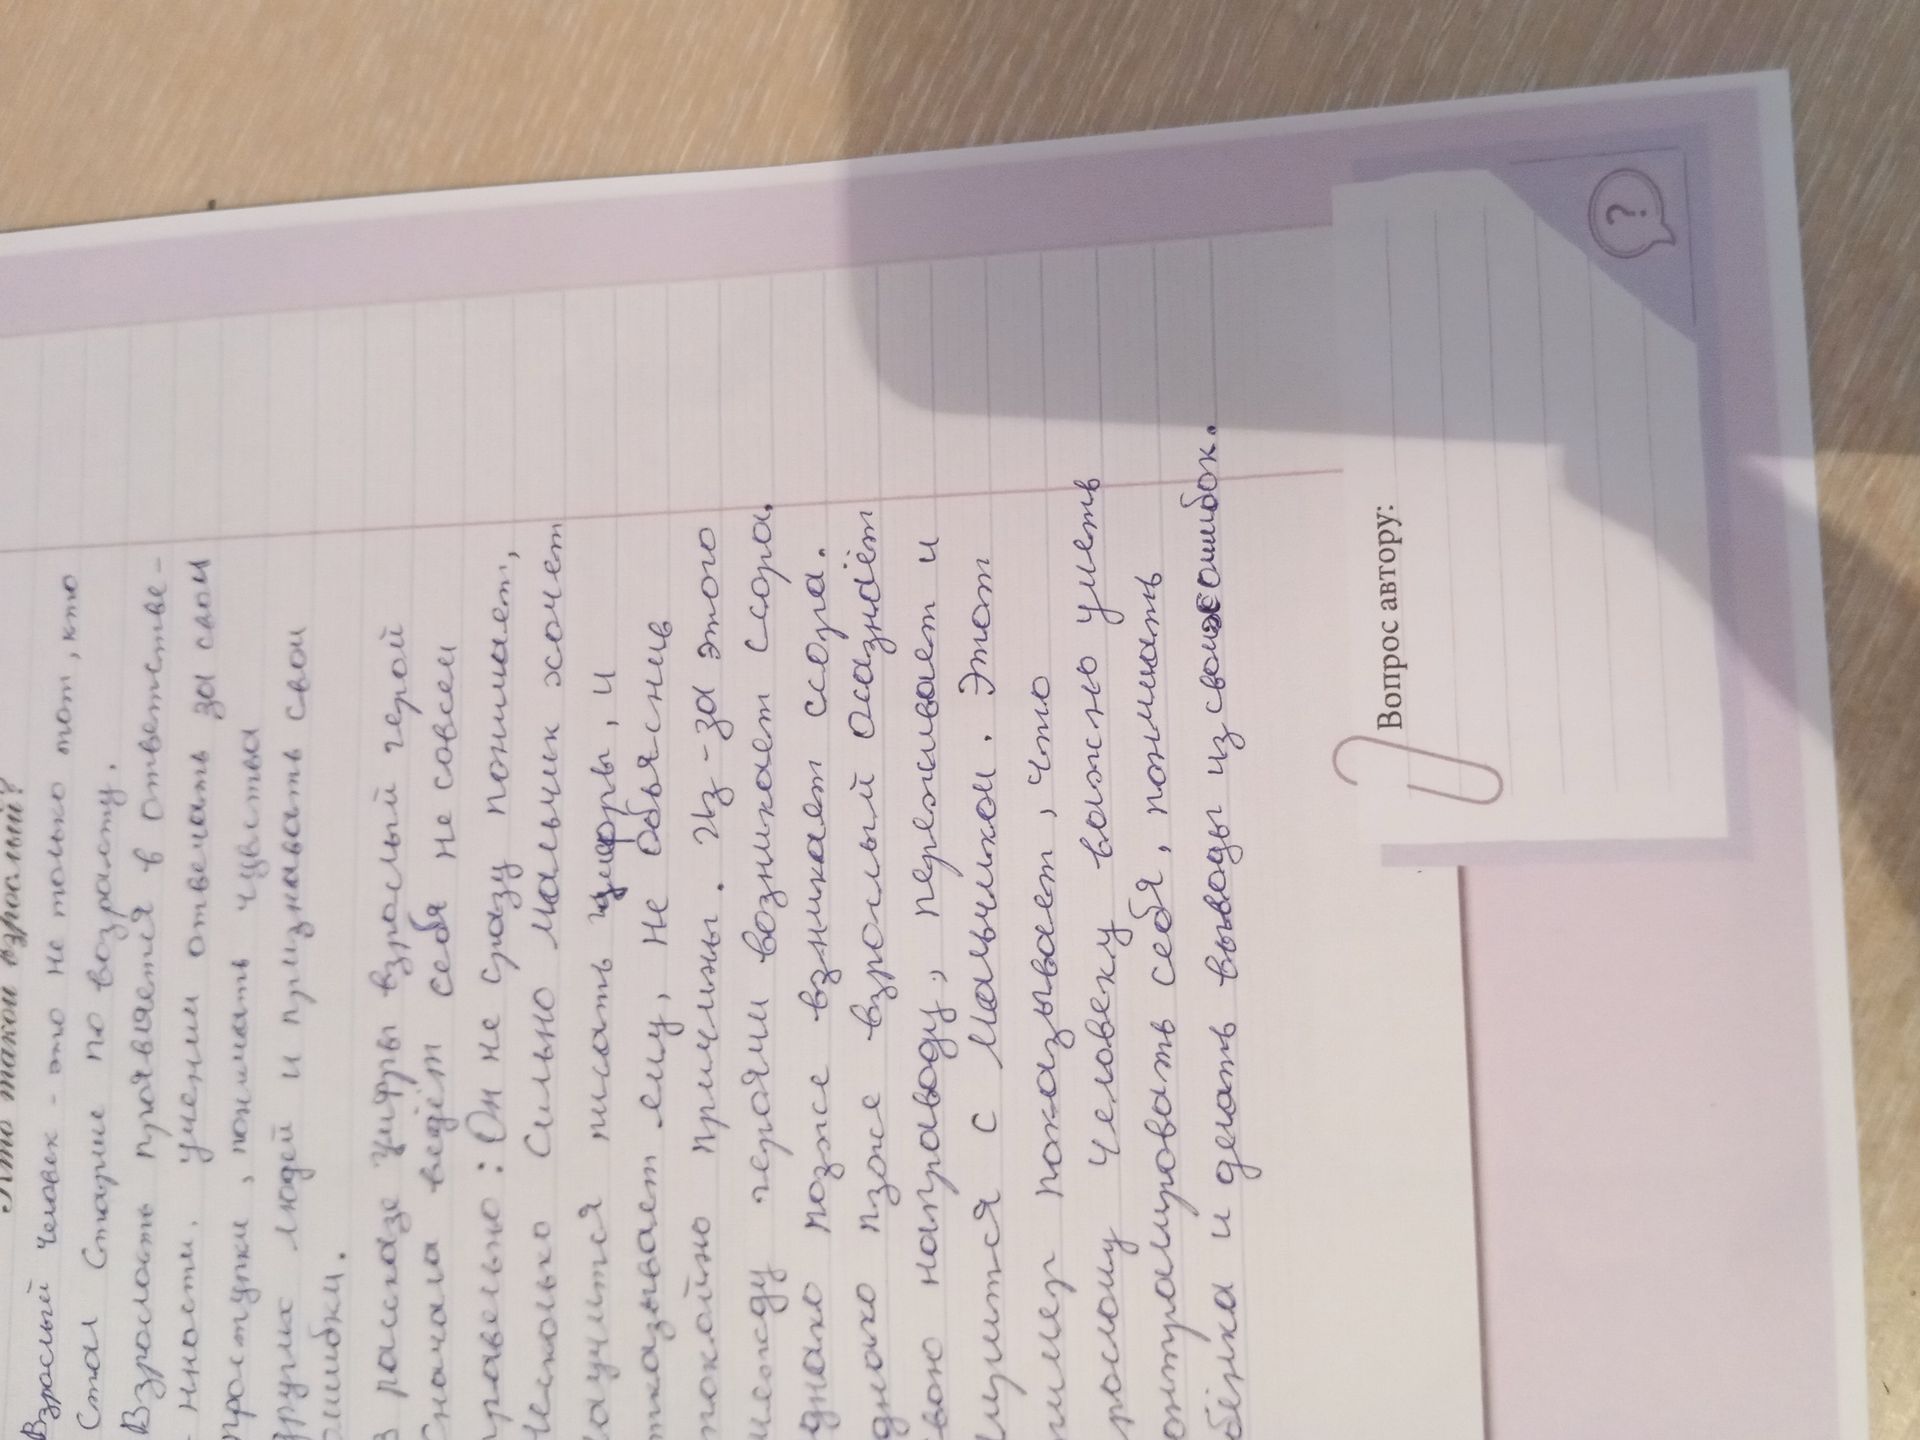 Кто такой взрослый?
Взрослый человек - это не только тот, кто
стал старше по возрасту.
Взрослость проявляется в ответстве-
нности, умении отвечать за свои
поступки, понимать чувства
других людей и признавать свои
ошибки.
В рассказе цифры взрослый герой
Сначала ведёт себя не совсем
правельно: Он не сразу понимает,
Несколько Сильно мальчик хочет
научится писать цифры, и
отказывает ему, не объяснив
спокойно причины. Из-за этого
между героями возникает ссора.
однако позже взникает ссора.
однако пзже взрослый осазнаёт
свою направоду, переживает и
мирится с мальчиком. Этот
пример показывает, что
взрослому человеку важно уметь
контралировать себя, понимать
ребёнка и делать выводы из своих ошибок.
Вопрос автору:
?